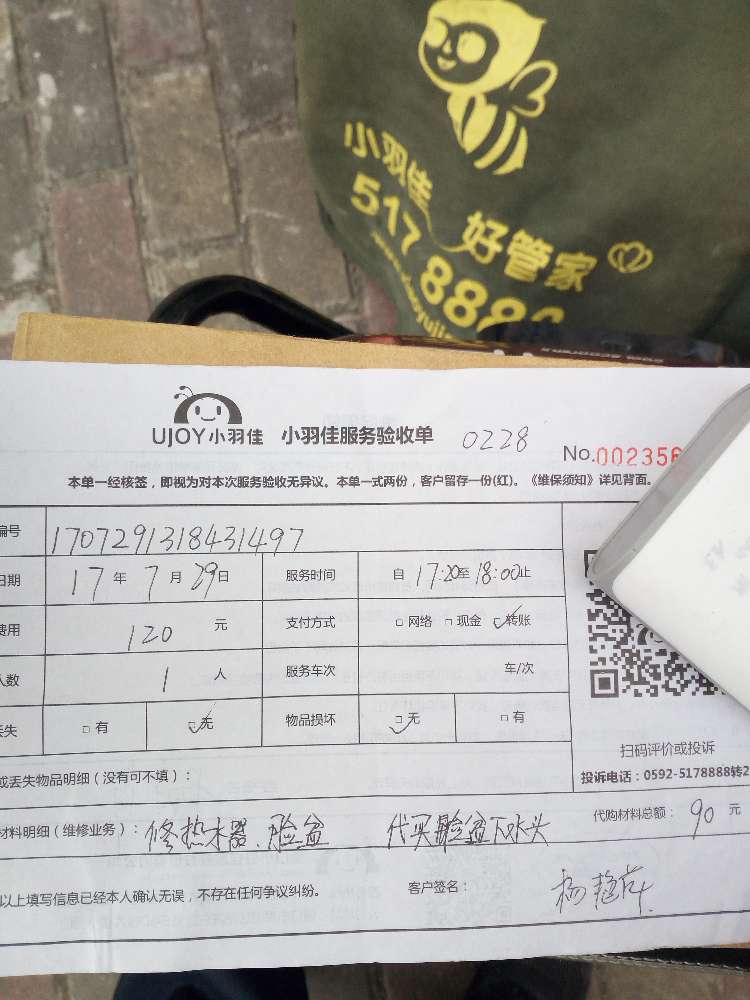 小羽佳 好管家
517 888
UJOY小羽佳 小羽佳服务验收单 0228 No.002356
本单一经核签，即视为对本次服务验收无异议。本单一式两份，客户留存一份(红)。《维保须知》详见背面。
编号 1707291318431497
日期 17 年 7 月 29 日 服务时间 自 17:20 至 18:00 止
费用 120 元 支付方式 □ 网络 □ 现金 ☑ 转账
人数 1 人 服务车次 车/次
丢失 □ 有 ☑ 无 物品损坏 ☑ 无 □ 有
扫码评价或投诉
投诉电话：0592-5178888转2
或丢失物品明细（没有可不填）：
材料明细（维修业务）：修热水器、脸盆 代买脸盆下水头 代购材料总额：90 元
以上填写信息已经本人确认无误，不存在任何争议纠纷。 客户签名：